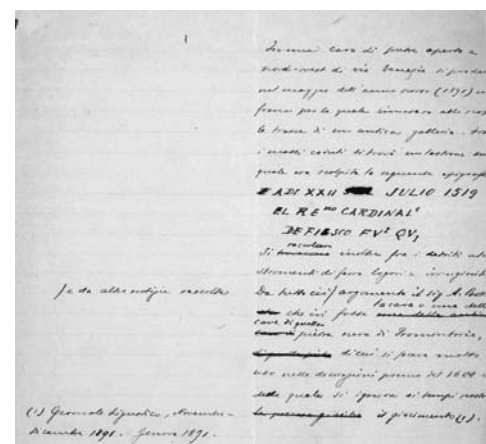 In una cava di pietre aperta a
nord-ovest di via Venezia si produsse
nel maggio dell'anno scorso (1891) una
frana per la quale rimasero allo scoperto
le tracce di un'antica galleria. Fra
i massi caduti si trovò un lastrone su
quale era scolpita la seguente epigrafe
E ADI XXII JULIO 1519
EL REmo CARDINALe
DE FIESCO FVe QVI
Si raccolsero inoltre fra i detriti
strumenti di ferro logori e irruginiti
Da tutto ciò argomenta il sig. A.
che ivi fosse la cava o una delle
cave di quella
pietra nera di Promontorio,
di cui si fece molto
uso nelle decorazioni prima del 1600 e
della quale si ignora ai tempi nostri
il giacimento (1).
/e da altre notizie raccolte
(1) Giornale Ligustico, Novembre-
dicembre 1891. Genova 1891.